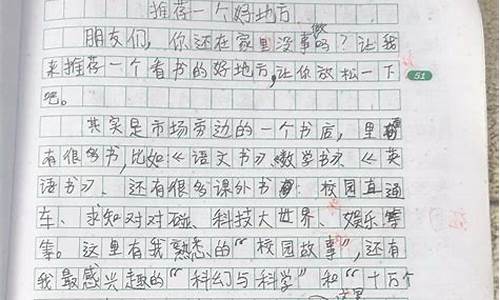 推荐一个好地方
朋友们，你还在家里没事做吗？让我
来推荐一个看书的好地方，让你放松一下
吧。
51
其实是市场旁边的一个书店，里
有很多书，比如《语文书》《数学书》、《英
语书》、还有很多课外书：校园直通
车、求知对对碰、科技大世界、娱乐等
等。这里有我熟悉的“校园故事”，还有
我最感兴趣的“科幻与科学”和“十万个